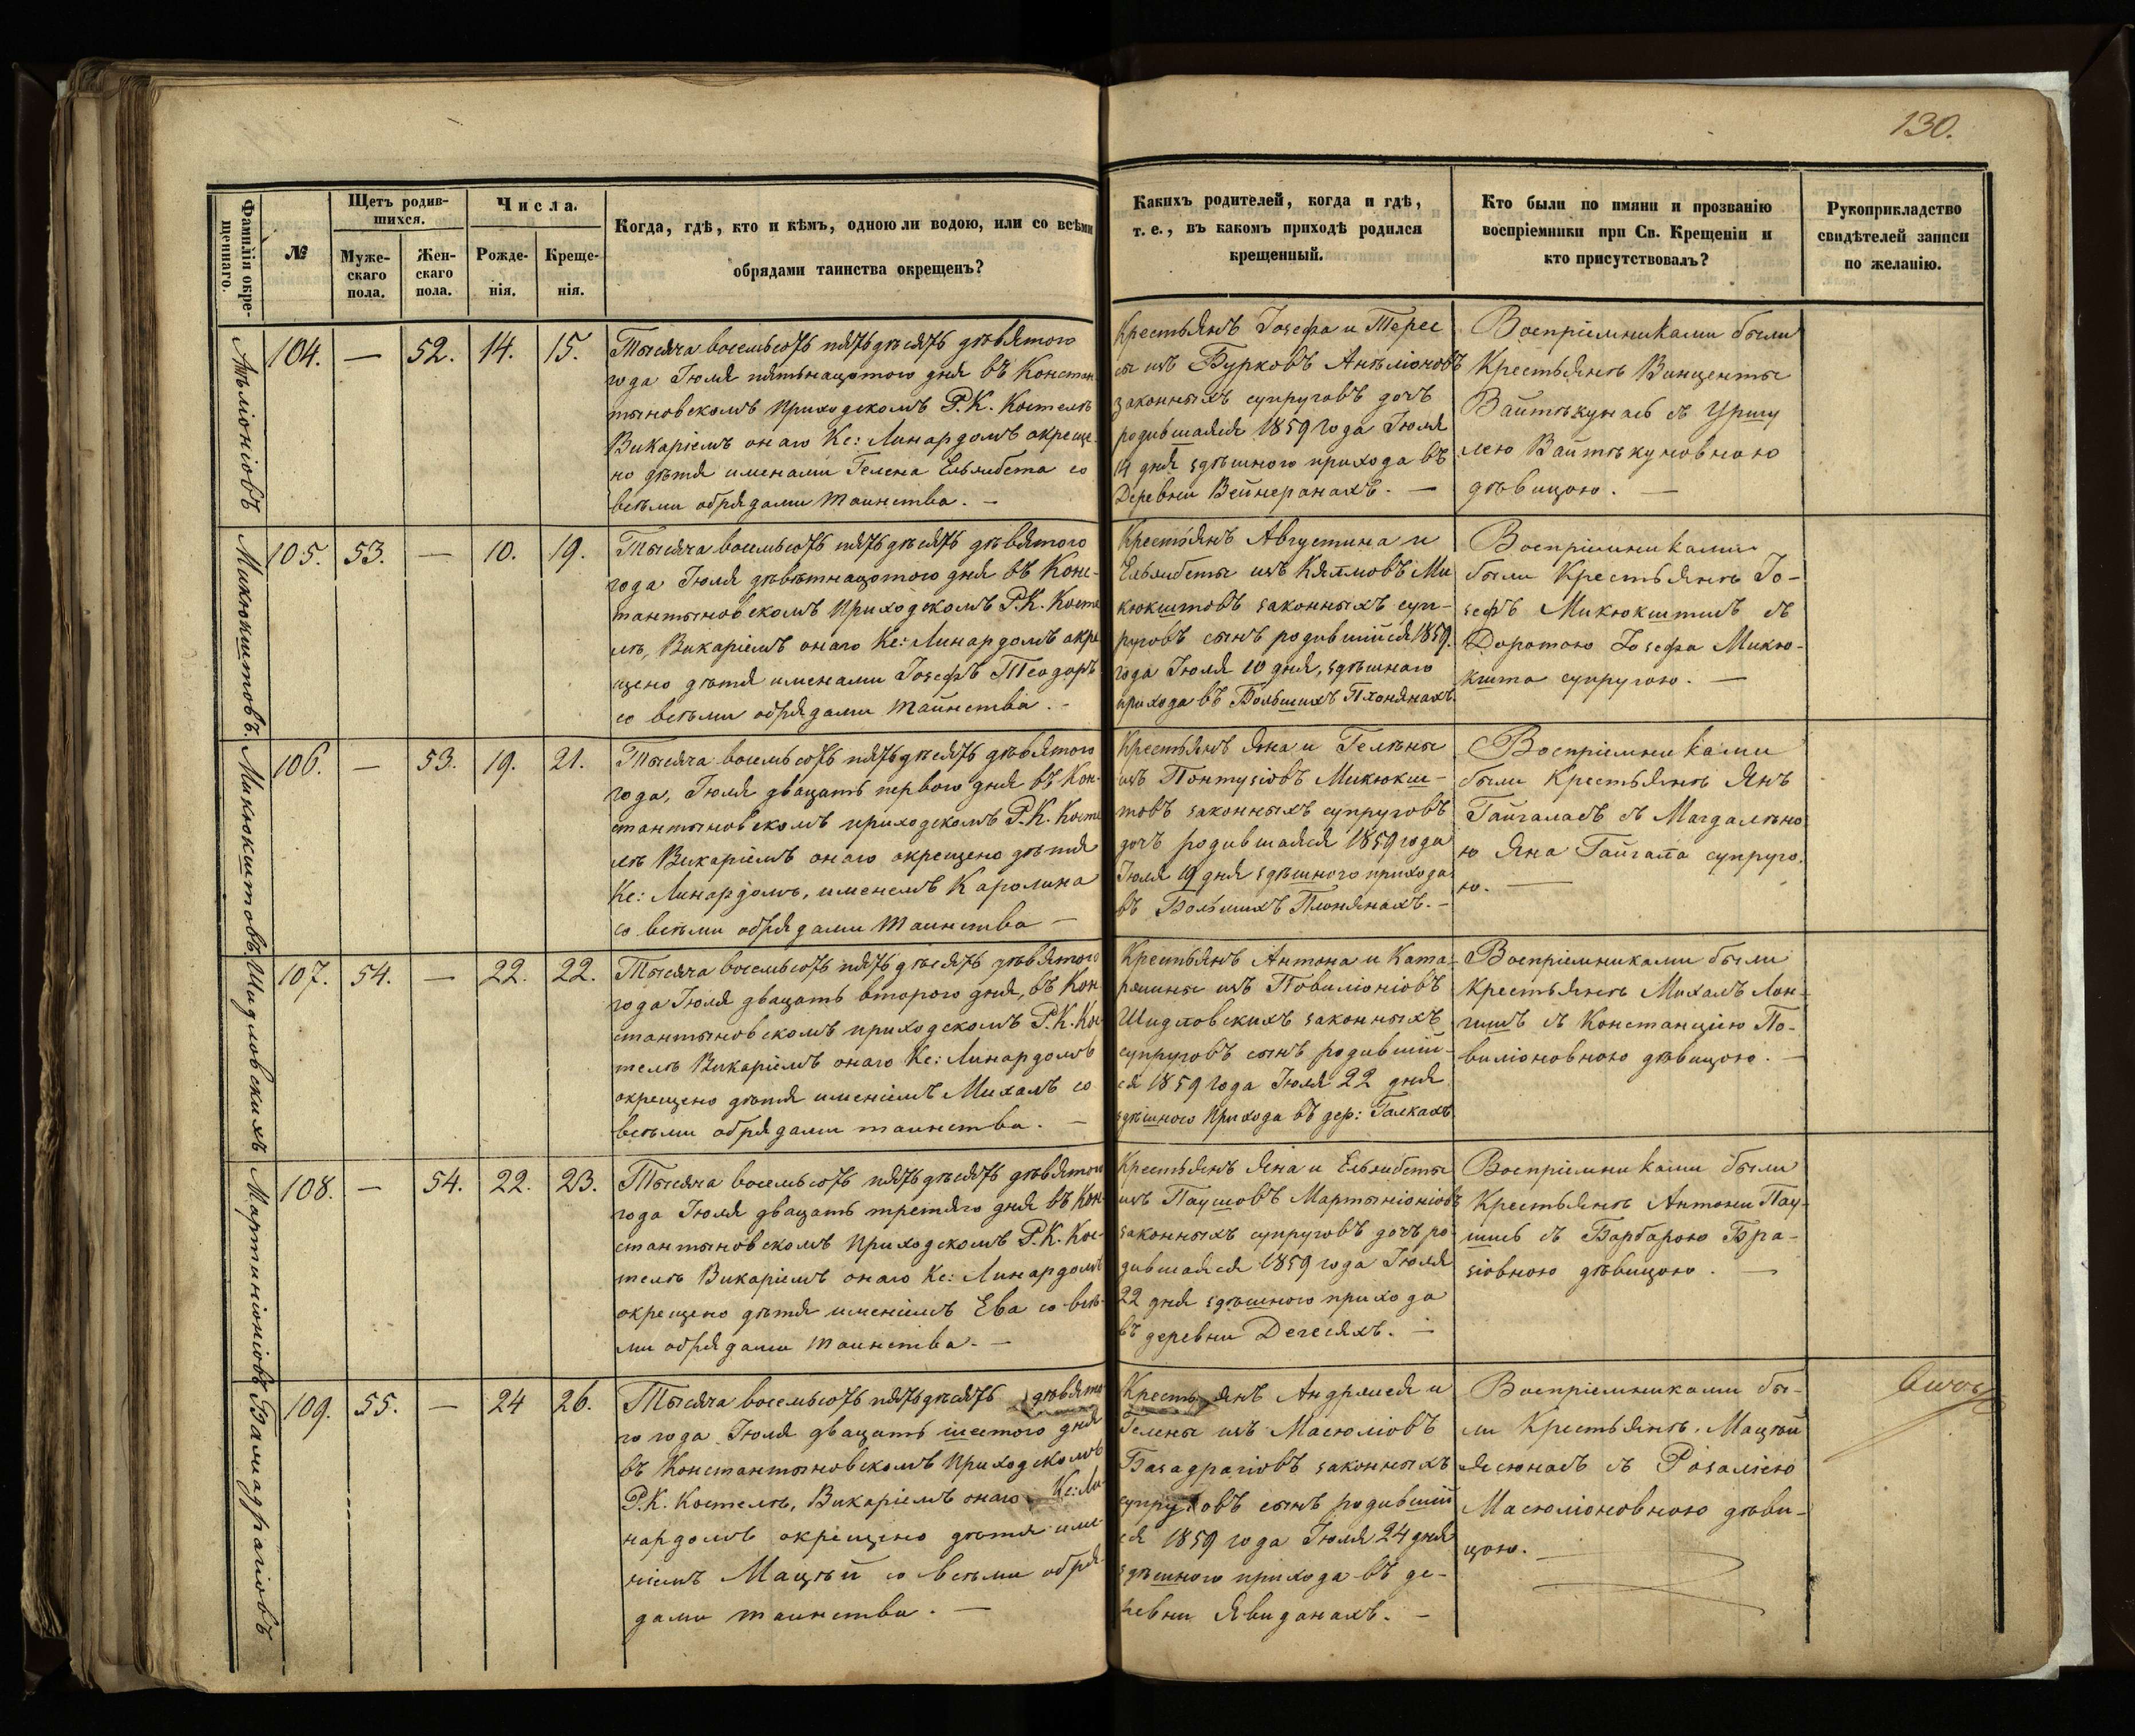 130.
Фамиліи окре-
щеннаго.
№
Щетъ родив-
шихся.
Муже-
скаго
пола.
Жен-
скаго
пола.
Числа.
Рожде-
нія.
Креще-
нія.
Когда, гдѣ, кто и кѣмъ, одною ли водою, или со всѣми
обрядами таинства окрещенъ?
Какихъ родителей, когда и гдѣ,
т. е., въ какомъ приходѣ родился
крещенный.
Кто были по имяни и прозванію
воспріемники при Св. Крещеніи и
кто присутствовалъ?
Рукоприкладство
свидѣтелей записи
по желанію.
104. — 52. 14. 15.
Тысяча восемьсотъ пятьдѣсятъ дѣвятого
года Іюля пятьнацотого дня въ Констан-
тыновскомъ Приходскомъ Р. К. Костелѣ
Викаріемъ онаго Кс: Линардомъ окреще-
но дѣтя именами Гелена Ельжбета со
всѣми обрядами таинства. —
Крестьянъ Іозефа и Терес
сы изъ Бурковъ
законныхъ супруговъ дочъ
родившаяся 1859 года Іюля
14 дня здѣшного прихода въ
Деревни Вейнеранахъ. —
Воспріемниками были
Крестьянѣ Винценты
Вайтѣкунасъ съ Уршу
лею Вайтѣкуновною
дѣвицою. —
Микюкштовъ.
105. 53. — 10. 19.
Тысяча восемьсотъ пятьдѣсятъ дѣвятого
года Іюля дѣвѣтнацотого дня въ Конс-
тантыновскомъ Приходскомъ Р. К. Косте
лѣ, Викаріемъ онаго Кс: Линардомъ окре
щено дѣтя именами Іозефъ Теодоръ
со всѣми обрядами таинства. -
Крестьянъ Августина и
Ельжбеты изъ Кяпмовъ Ми
кюкштовъ законныхъ суп-
руговъ сынъ родившійся 1859.
года Іюля 10 дня, здѣшнаго
прихода въ Большихъ Плонянахъ.
Воспріемниками
были Крестьянѣ Іо-
зефъ Микюкштисъ съ
Доротою Іозефа Микю-
кшта супругою. —
Микюкштовъ.
106. — 53. 19. 21.
Тысяча восемьсотъ пятьдѣсятъ дѣвятого
года, Іюля двацать первого дня въ Кон-
стантыновскомъ приходскомъ Р. К. Косте
лѣ Викаріемъ онаго окрещено дѣтя
Кс: Линардомъ, именемъ Каролина
со всѣми обрядами таинства —
Крестьянъ Яна и Гелѣны
изъ Понтузіовъ Микюкш-
товъ законныхъ супруговъ
дочъ родившаяся 1859 года
Іюля 19 дня здѣшного прихода
въ Большихъ Плонянахъ. -
Воспріемниками
были Крестьянѣ Янъ
Гайгаласъ съ Магдалѣно
ю Яна Гайгала супруго.
ю. —
Шидловскихъ
107. 54. — 22. 22.
Тысяча восемьсотъ пятьдѣсятъ дѣвятого
года Іюля двацать второго дня, въ Кон
стантыновскомъ приходскомъ Р. К. Кос
телѣ Викаріемъ онаго Кс: Линардомъ
окрещено дѣтя именіемъ Михалъ со
всѣми обрядами таинства. —
Крестьянъ Антона и Ката-
ржины изъ Повиліоніовъ
Шидловскихъ законныхъ
супруговъ сынъ родившій-
ся 1859 года Іюля 22 дня
здѣшного Прихода въ дер: Галкахъ
Воспріемниками были
Крестьянѣ Михалъ Лон-
гишъ съ Констанціею По-
виліоновною дѣвицою. —
Мартиніоніовъ
108. — 54. 22. 23.
Тысяча восемьсотъ пятьдѣсятъ дѣвятого
года Іюля двацать третяго дня въ Кон-
стантыновскомъ Приходскомъ Р. К. Кос-
телѣ Викаріемъ онаго Кс: Линардомъ
окрещено дѣтя именіемъ Ева со всѣ-
ми обрядами таинства. —
Крестьянъ Яна и Ельжбеты
изъ Паушовъ Мартыніоніовъ
законныхъ супруговъ дочъ ро-
дившаяся 1859 года Іюля
22 дня здѣшного прихода
въ деревни Дегесяхъ. —
Воспріемниками были
Крестьянѣ Антони Пау-
шисъ съ Барбарою Бра-
зіовною дѣвицою. —
109. 55. — 24 26.
Тысяча восемьсотъ пятьдѣсятъ дѣвято
го года Іюля двацать шестого дня
въ Константыновскомъ Приходскомъ
Р. К. Костелѣ, Викаріемъ онаго Кс: Ли-
нардомъ окрещено дѣтя име-
ніемъ Мацѣй со всѣми обря-
дами таинства. —
Крестьянъ Андржея и
Гелены изъ Масюліовъ
Базадрагіовъ законныхъ
супруговъ сынъ родившій
ся 1859 года Іюля 24 дня
здѣшного прихода въ де-
ревни Явиданахъ. —
Воспріемниками бы-
ли Крестьянѣ Мацѣй
Ясюнасъ съ Розаліею
Масюліоновною дѣви-
цою. —